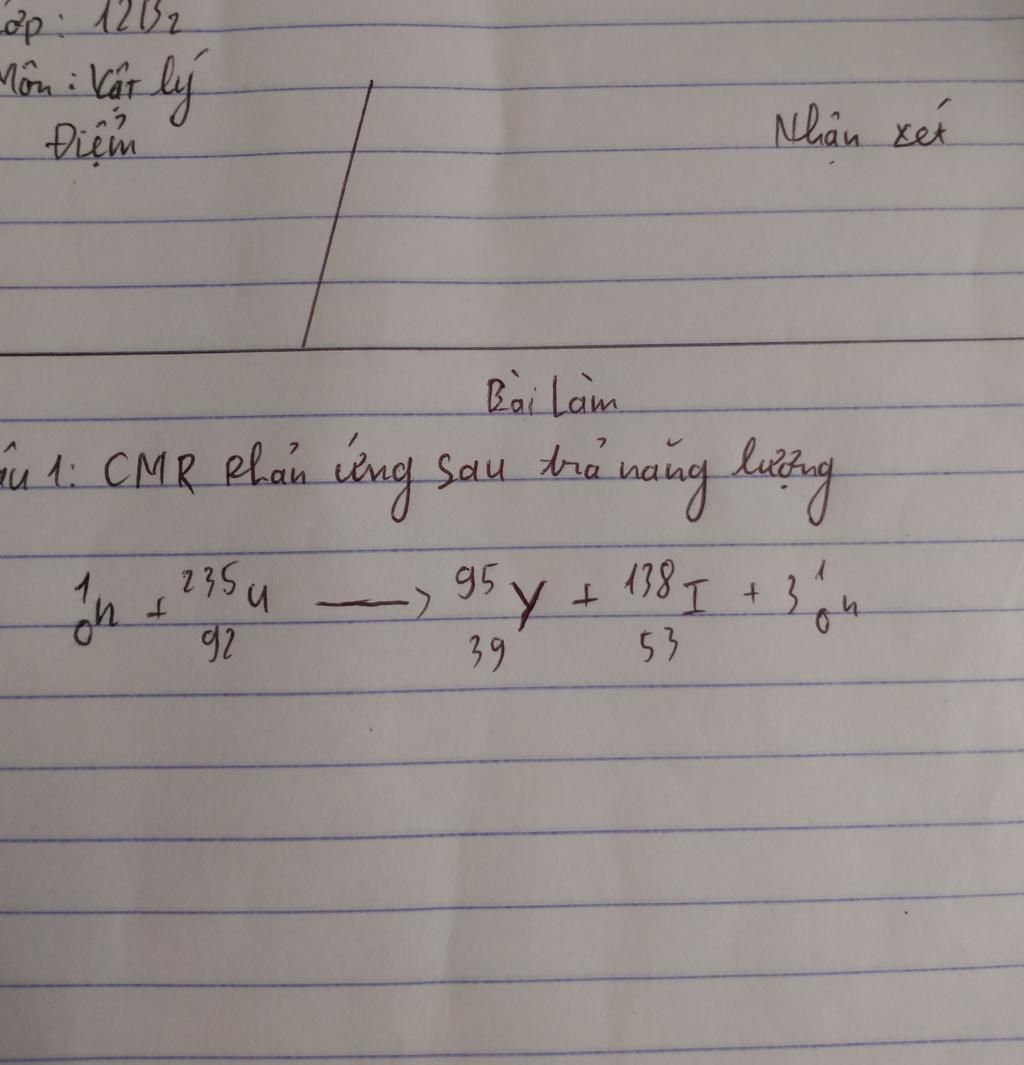 ớp: 12B2
Môn: Vật lý
Điểm
Nhận xét
Bài làm
âu 1: CMR phản ứng sau trả năng lượng
¹₀n + ²³⁵₉₂U → ⁹⁵₃₉Y + ¹³⁸₅₃I + 3¹₀n